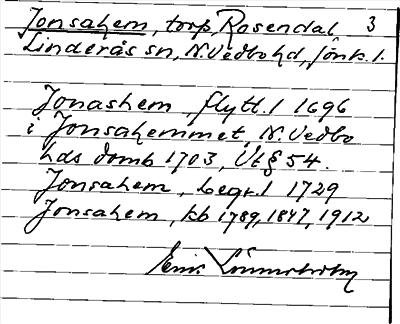 Jonsahem, torp, Rosendal 3
Linderås sn, N. Vedbo hd, Jönk. l.
Jonashem, flytt.l 1696
i Jonsahemmet, N. Vedbo
hds domb 1703, Ut § 54.
Jonsahem, begr.l 1729
Jonsahem, kb 1789, 1847, 1912